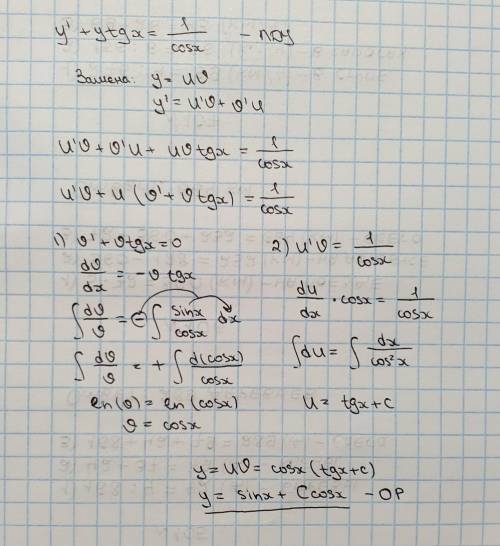 y' + y tgx = 1/cosx - ЛДУ
Замена: y = uϑ
y' = u'ϑ + ϑ'u
u'ϑ + ϑ'u + uϑ tgx = 1/cosx
u'ϑ + u (ϑ' + ϑ tgx) = 1/cosx
1) ϑ' + ϑ tgx = 0
dϑ/dx = -ϑ tgx
∫ dϑ/ϑ = - ∫ sinx/cosx dx
∫ dϑ/ϑ = + ∫ d(cosx)/cosx
ln(ϑ) = ln(cosx)
ϑ = cosx
2) u'ϑ = 1/cosx
du/dx · cosx = 1/cosx
∫ du = ∫ dx/cos²x
u = tgx + c
y = uϑ = cosx (tgx + c)
y = sinx + C cosx - ОР